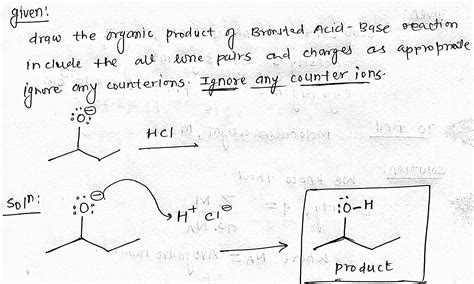 given:
draw the organic product of Bronsted Acid-Base reaction
include the all lone pairs and charges as appropriate
ignore any counterions. Ignore any counter ions.
:Ö:⊖
HCl
Soln:
:Ö:⊖
H⁺ Cl⊖
:Ö-H
product